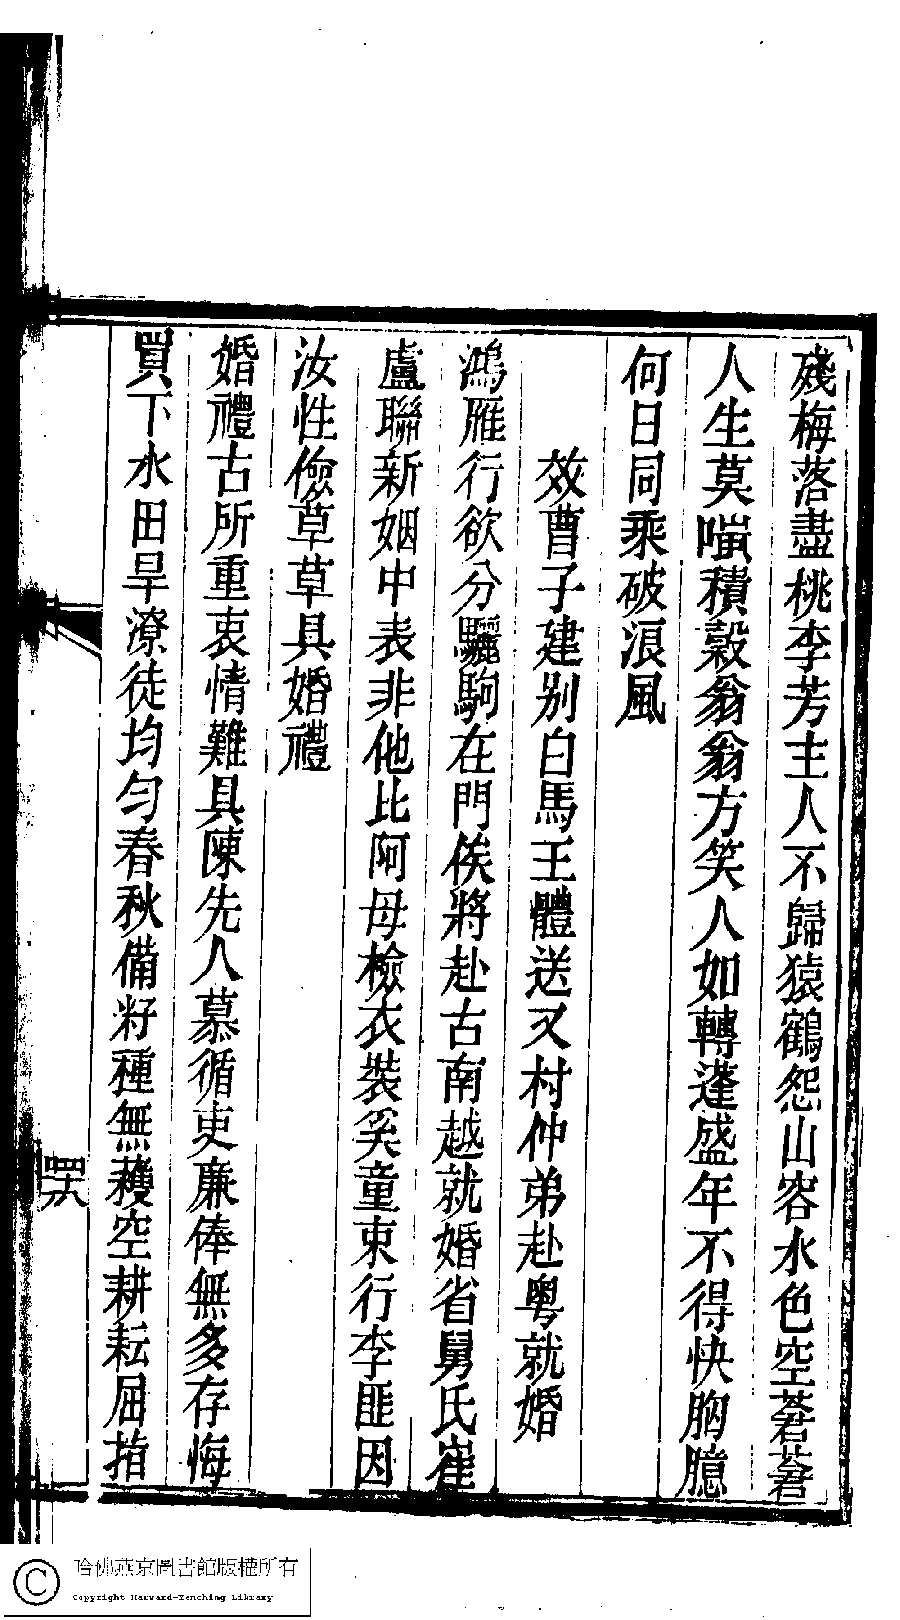 殘梅落盡桃李芳主人不歸猿鶴怨山容水色空蒼蒼
人生莫嗤積穀翁翁方笑人如轉蓬盛年不得快胸臆
何日同乘破浪風
效曹子建別白馬王體送又村仲弟赴粵就婚
鴻雁行欲分驪駒在門俟將赴古南越就婚省舅氏崔
盧聯新姻中表非他比阿母檢衣裝奚童束行李匪因
汝性儉草草具婚禮
婚禮古所重衷情難具陳先人慕循吏廉俸無多存悔
買下水田旱潦徒均勻春秋備籽種無穫空耕耘屈指
四六
哈佛燕京圖書館版權所有
Copyright Harvard-Yenching Library